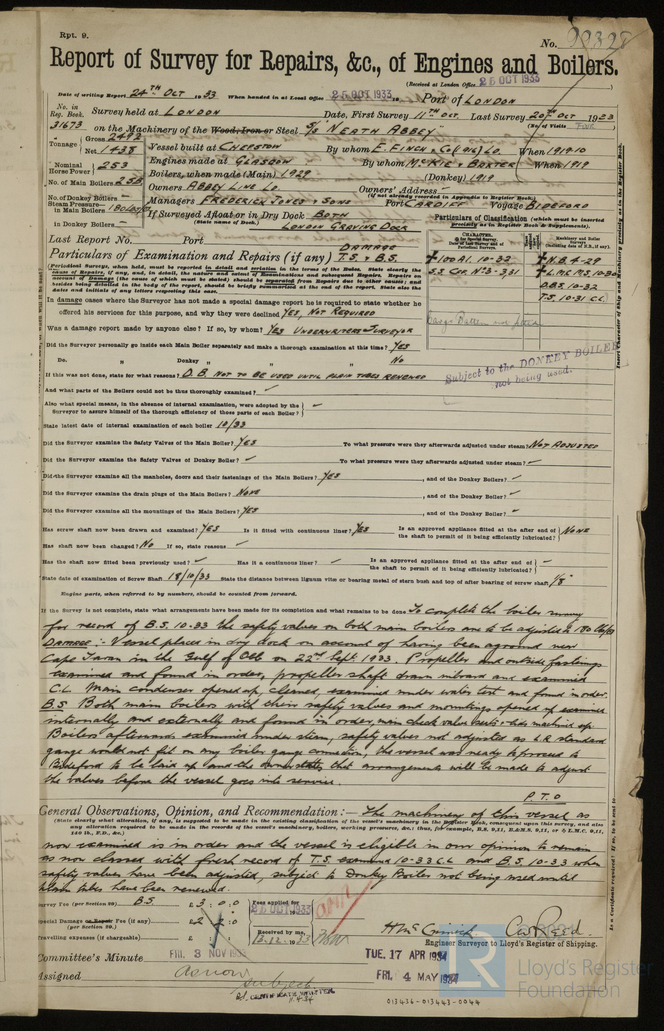 Rpt. 9.
No. 99328
Report of Survey for Repairs, &c., of Engines and Boilers.
(Received at London Office 25 OCT 1933
Date of writing Report 24TH OCT 1933 When handed in at Local Office 25 OCT 1933 Port of LONDON
No. in Reg. Book. Survey held at LONDON Date, First Survey 11TH OCT. Last Survey 20TH OCT 1933
(No. of Visits FOUR
31673 on the Machinery of the Wood, Iron or Steel S/S NEATH ABBEY
Tonnage Gross 2492 Net 1438
Vessel built at CHEPSTOW By whom E. FINCH & CO (1916) LD When 1919.10
Nominal Horse Power 253
Engines made at GLASGOW By whom MCKIE & BAXTER When 1919
Boilers, when made (Main) 1929 (Donkey) 1919
No. of Main Boilers 2SB
Owners ABBEY LINE LD. Owners' Address —
(if not already recorded in Appendix to Register Book.)
No. of Donkey Boilers —
Managers FREDERICK JONES & SONS Port CARDIFF Voyage BIDEFORD
Steam Pressure in Main Boilers 180 lbs
If Surveyed Afloat or in Dry Dock BOTH
(State name of Dock.) LONDON GRAVING DOCK
in Donkey Boilers —
Particulars of Classification (which must be inserted precisely as in Register Book & Supplements).
Last Report No. Port
Particulars of Examination and Repairs (if any) DAMAGE T.S. & B.S.
+100A1. 10-32
S.S. CDF. No3-3,31
+N.B. 4-29
+L.M.C. MS. 10-30
D.B.S. 10-32
T.S. 10-31 C.L.
In damage cases where the Surveyor has not made a special damage report he is required to state whether he
offered his services for this purpose, and why they were declined YES, NOT REQUIRED
Was a damage report made by anyone else? If so, by whom? YES UNDERWRITERS SURVEYOR
Did the Surveyor personally go inside each Main Boiler separately and make a thorough examination at this time? YES
Do. " Donkey " " " NO
Subject to the DONKEY BOILER not being used.
If this was not done, state for what reasons? D.B. NOT TO BE USED UNTIL PLAIN TUBES RENEWED
And what parts of the Boilers could not be thoroughly examined? —
Also what special means, in the absence of internal examination, were adopted by the
Surveyor to assure himself of the thorough efficiency of those parts of each Boiler? —
State latest date of internal examination of each boiler 10/33
Did the Surveyor examine the Safety Valves of the Main Boiler? YES To what pressure were they afterwards adjusted under steam? NOT ADJUSTED
Did the Surveyor examine the Safety Valves of Donkey Boiler? — To what pressure were they afterwards adjusted under steam? —
Did the Surveyor examine all the manholes, doors and their fastenings of the Main Boilers? YES , and of the Donkey Boiler? —
Did the Surveyor examine the drain plugs of the Main Boilers? NONE , and of the Donkey Boiler? —
Did the Surveyor examine all the mountings of the Main Boilers? YES , and of the Donkey Boiler? —
Has screw shaft now been drawn and examined? YES Is it fitted with continuous liner? YES Is an approved appliance fitted at the after end of the shaft to permit of it being efficiently lubricated? NONE
Has shaft now been changed? NO If so, state reasons —
Has the shaft now fitted been previously used? — Has it a continuous liner? — Is an approved appliance fitted at the after end of the shaft to permit of it being efficiently lubricated? —
State date of examination of Screw Shaft 18/10/33 State the distance between lignum vitæ or bearing metal of stern bush and top of after bearing of screw shaft 1/8"
Engine parts, when referred to by numbers, should be counted from forward.
If the Survey is not complete, state what arrangements have been made for its completion and what remains to be done To complete the boiler survey
for record of B.S. 10-33 the safety valves on both main boilers are to be adjusted to 180 lbs/
DAMAGE:- Vessel placed in dry dock on account of having been aground near
Cape Taran in the Gulf of Obb on 22nd Sept. 1933. Propeller and outside fastenings
examined and found in order, propeller shaft drawn inboard and examined
C.L. Main condenser opened up, cleaned, examined under water test and found in order.
B.S. Both main boilers with their safety valves and mountings opened up examined
internally and externally and found in order, main check valve seats & lids machined up.
Boilers afterwards examined under steam, safety valves not adjusted as L.R. standard
gauge would not fit on any boiler gauge connection, the vessel was ready to proceed to
Bideford to be laid up and the owners state, that arrangements will be made to adjust
the valves before the vessel goes into service.
P.T.O
General Observations, Opinion, and Recommendation:— The machinery of this vessel as
now examined is in order and the vessel is eligible in our opinion to remain
as now classed with fresh record of T.S. examined 10-33 C.L. and B.S. 10-33 when
safety valves have been adjusted, subject to Donkey Boiler not being used until
plain tubes have been renewed.
Survey Fee (per Section 29) B.S. £ 3 : 0 : 0 Fees applied for 25 OCT 1933
Special Damage or Repair Fee (if any) (per Section 29.) £ 2 : 2 : 0
Received by me,
Travelling expenses (if chargeable) £ : : 13.12.1933
Engineer Surveyor to Lloyd's Register of Shipping.
Committee's Minute FRI. 3 NOV 1933 TUE. 17 APR 1934
Assigned As now FRI. 4 MAY 1934
subject
CERTIFICATE WRITTEN
013436-013443-0044
LR
Lloyd's Register
Foundation